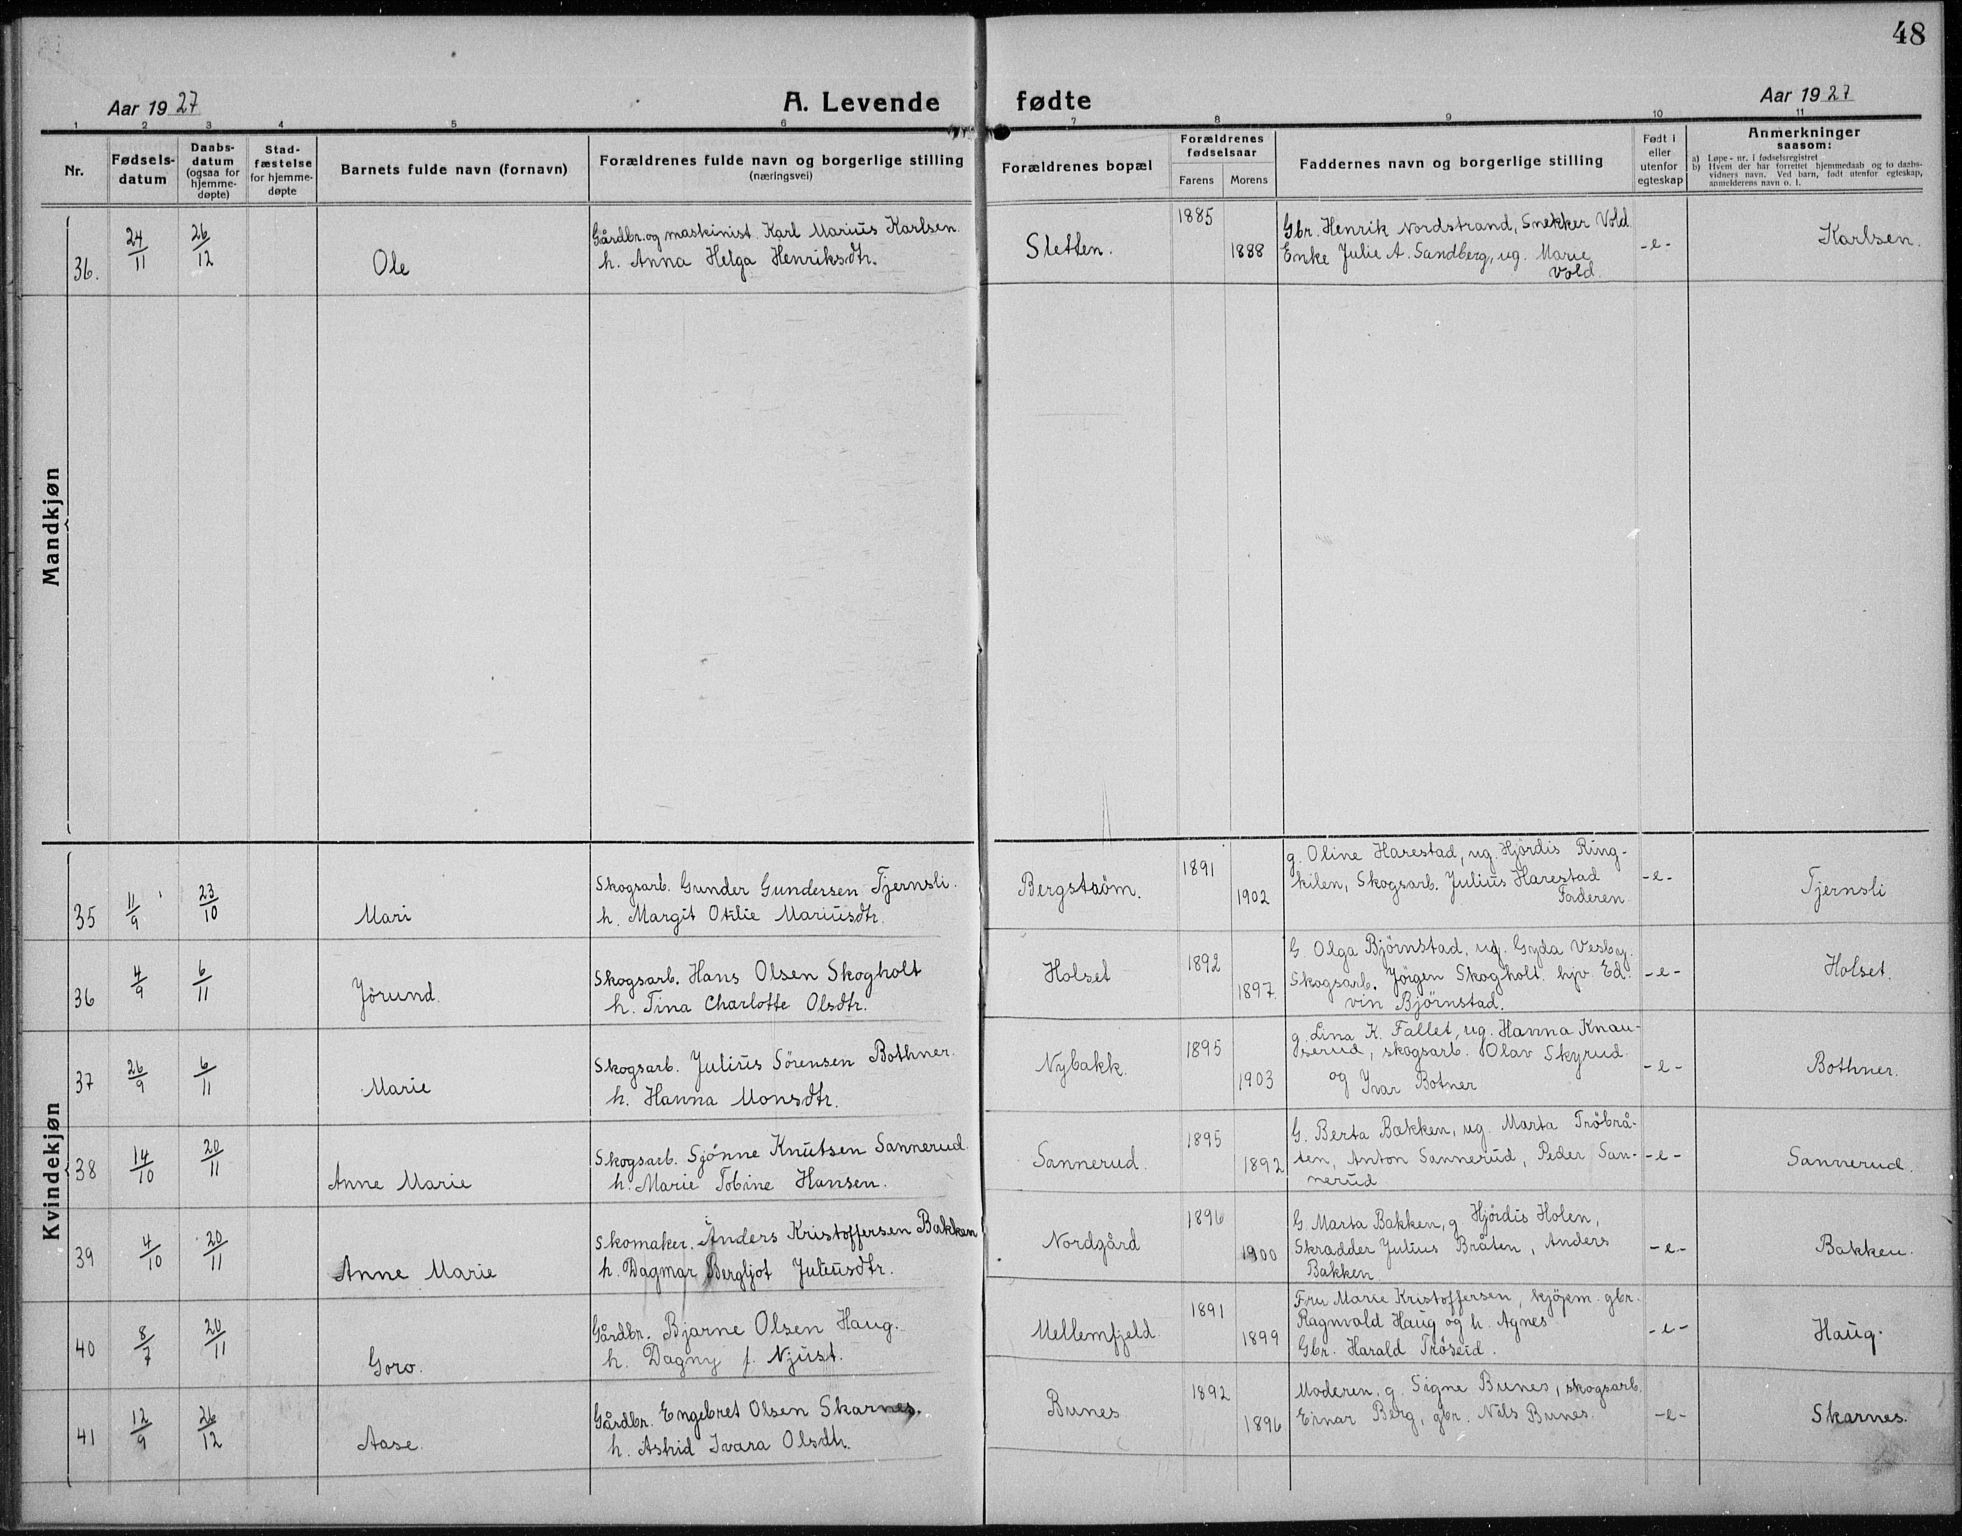 48
Aar 1927
A. Levende fødte
Aar 1927
1 2 3 4 5 6 7 8 9 10 11
Nr.
Fødsels-
datum
Daabs-
datum
(ogsaa for
hjemme-
døpte)
Stad-
fæstelse
for hjemme-
døpte
Barnets fulde navn (fornavn)
Forældrenes fulde navn og borgerlige stilling
(næringsvei)
Forældrenes bopæl
Forældrenes
fødselsaar
Farens Morens
Faddernes navn og borgerlige stilling
Født i
eller
utenfor
egteskap
Anmerkninger
saasom:
a) Løpe-nr. i fødselsregistret
b) Hvem der har forrettet hjemmedaab og to daabs-
vidners navn. Ved barn, født utenfor egteskap,
anmelderens navn o. l.
Mandkjøn
36. 24/11 26/12 Ole
Gårdbr. og maskinist Karl Marius Karlsen
h. Anna Helga Henriksdtr.
Sletten. 1885 1888
Gbr. Henrik Nordstrand, Snekker Vold
Enke Julie A. Sandberg, ug. Marie
Vold.
-e- Karlsen.
Kvindekjøn
35 11/9 23/10 Mari
Skogsarb. Gunder Gundersen Tjernsli.
h. Margit Otilie Mariusdtr.
Bergstrøm. 1891 1902
g. Oline Harestad, ug. Hjördis Ring-
kilen, Skogsarb. Julius Harestad
Faderen
-e- Tjernsli
36 4/9 6/11 Jörund.
Skogsarb. Hans Olsen Skogholt
h. Tina Charlotte Olsdtr.
Holset 1892 1897
G. Olga Björnstad, ug. Gyda Vesby.
Skogsarb. Jörgen Skogholt hjv. Ed-
vin Björnstad.
-e- Holset.
37 26/9 6/11 Marie
Skogsarb. Julius Sörensen Bothner.
h. Hanna Monsdtr.
Nybakk. 1895 1903
g. Lina K. Fallet, ug. Hanna Knau-
serud, skogsarb. Olav Skyrud
og Ivar Botner
-e- Bothner.
38 14/10 20/11 Anne Marie
Skogsarb. Sjönne Knutsen Sannerud
h. Marie Tobine Hansen.
Sannerud. 1895 1892
G. Berta Bakken, ug. Marta Tröbrå-
ten, Anton Sannerud, Peder San-
nerud
-e- Sannerud.
39 4/10 20/11 Anne Marie
Skomaker. Anders Kristoffersen Bakken
h. Dagmar Bergljot Juliusdtr.
Nordgård 1896 1900
G. Marta Bakken, g Hjördis Holen,
Skradder Julius Bråten, Anders
Bakken
-e- Bakken.
40 8/7 20/11 Goro.
Gårdbr. Bjarne Olsen Haug.
h. Dagny f. Njust.
Mellemfjeld. 1891 1899
Fru Marie Kristoffersen, kjöjem. gbr.
Ragnvald Haug og h. Agnes
Gbr. Harald Tröseid.
-e- Haug.
41 12/9 26/12 Aase.
Gårdbr. Engebret Olsen Skarnes.
h. Astrid Ivara Olsdtr.
Bunes 1892 1896
Moderen, g. Signe Bunes, skogsarb.
Einar Berg, gbr. Nils Bunes.
-e- Skarnes.